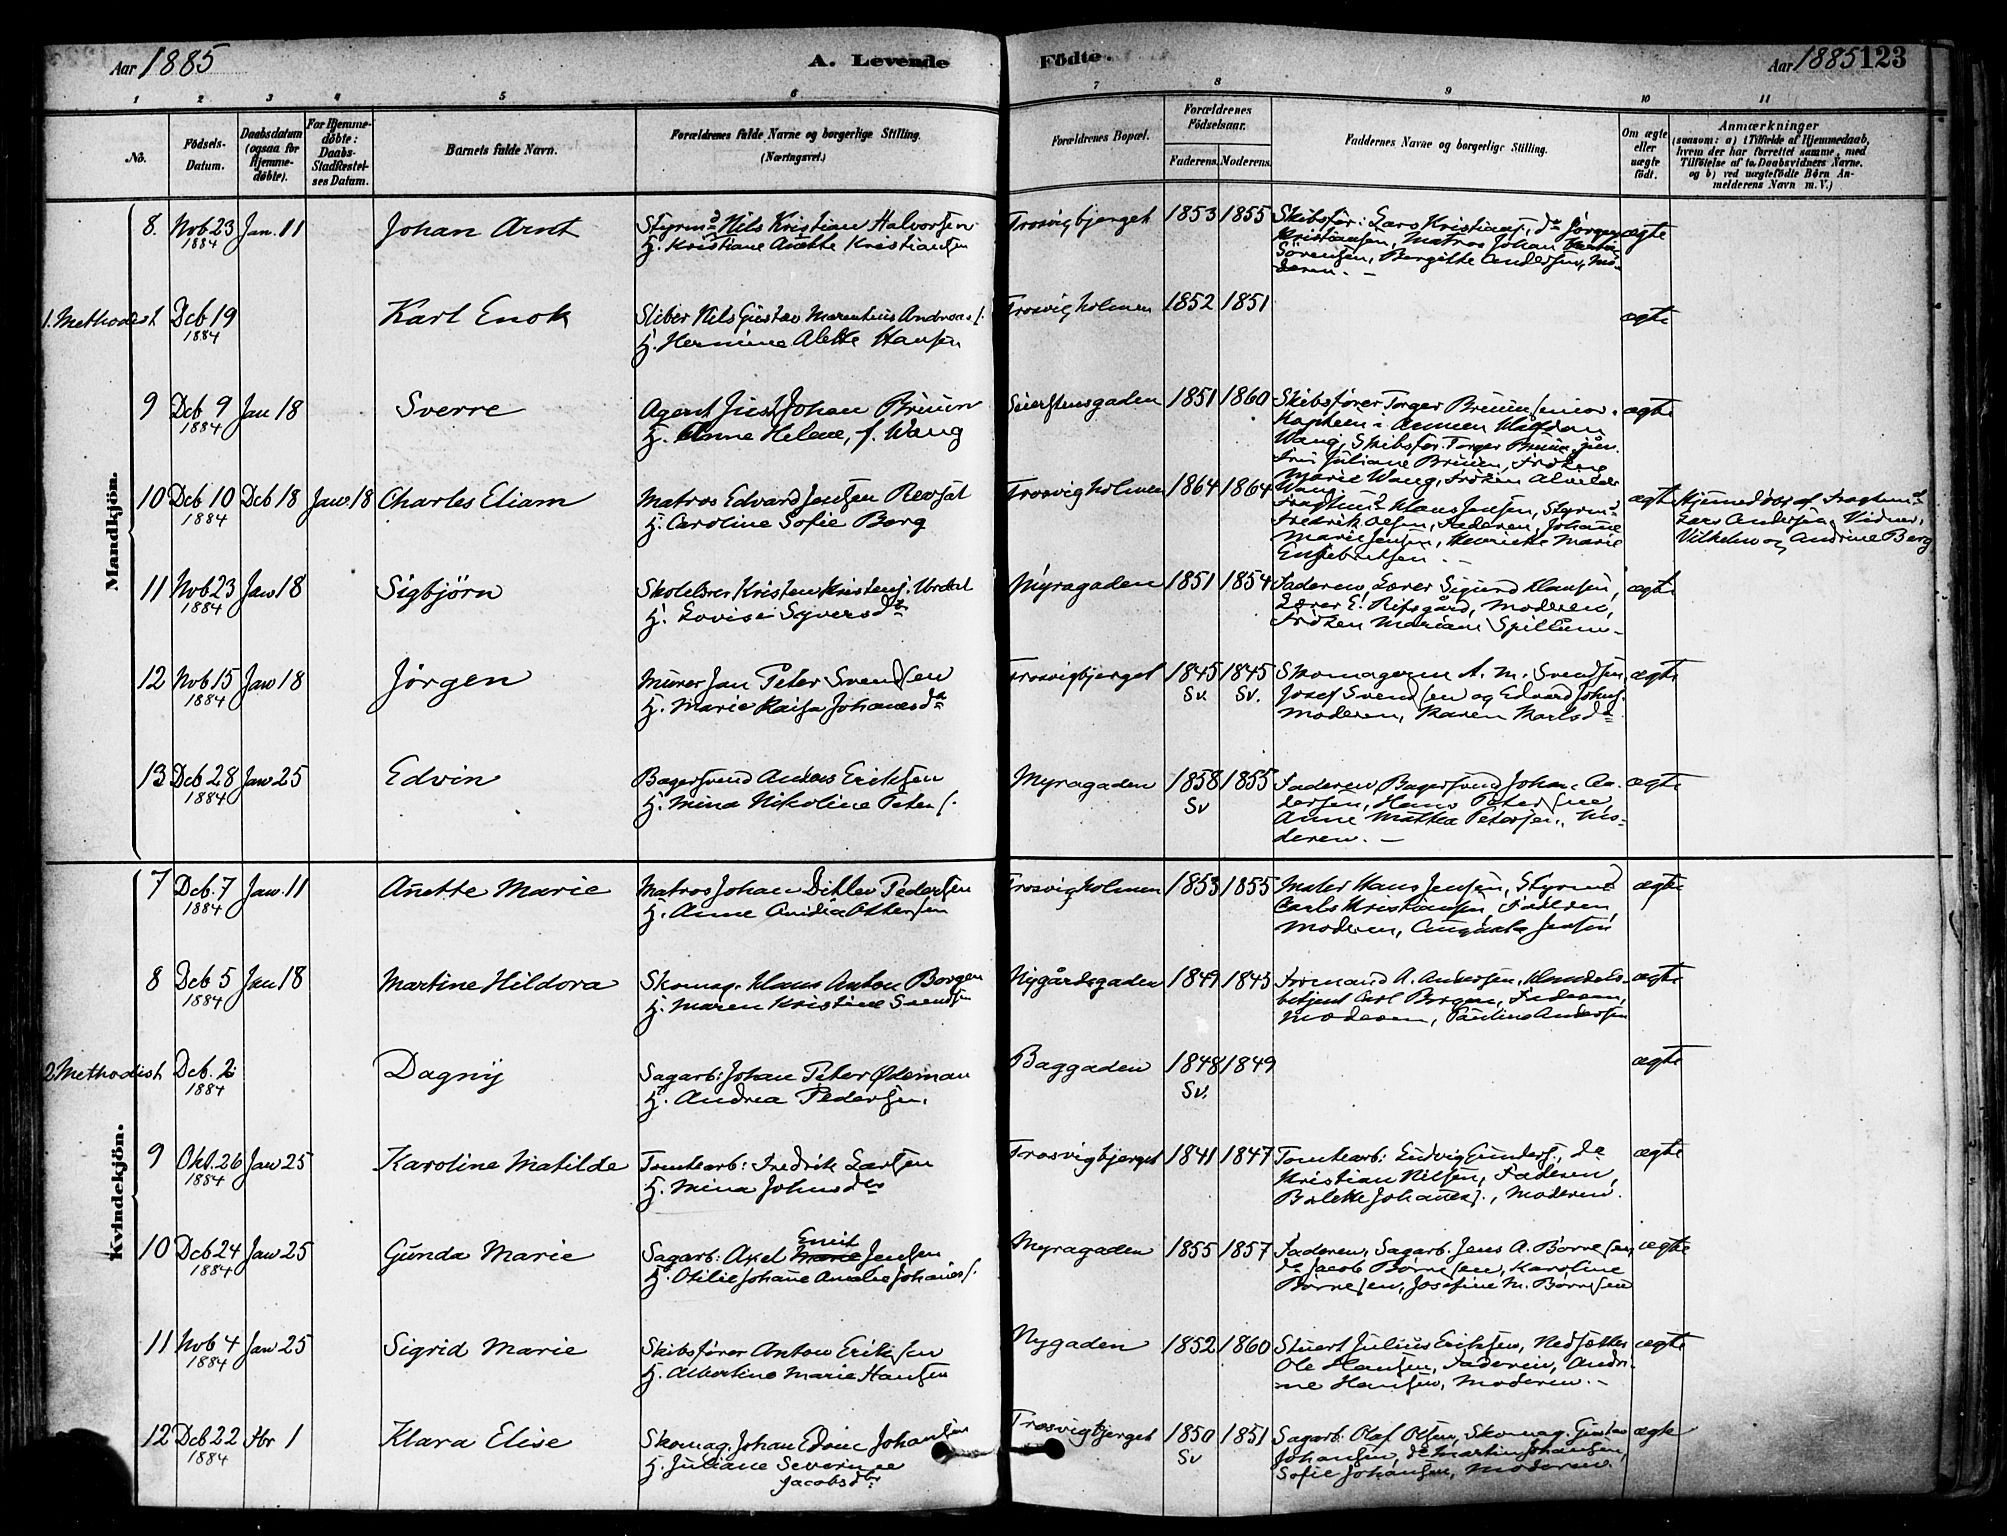 Aar 1885
A. Levende
Födte.
Aar 1885 123
1 2 3 4 5 6 7 8 9 10 11
No.
Födsels-Datum.
Daabsdatum (ogsaa for Hjemmedøbte).
For Hjemmedøbte: Daabs-Stadfæstelses Datum.
Barnets fulde Navn.
Forældrenes fulde Navne og borgerlige Stilling. (Næringsvei.)
Forældrenes Bopæl.
Forældrenes Födselsaar.
Faderens. Moderens.
Faddernes Navne og borgerlige Stilling.
Om ægte eller uægte født.
Anmærkninger
(saasom: a) i Tilfælde af Hjemmedaab,
hvem der har forrettet samme, med
Tilföielse af to Daabsvidners Navne.
og b) ved uægtefödte Børn An-
melderens Navn m. V.)
Mandkjön.
8. Nob 23 1884 Jan. 11 Johan Arnt
Styrmd Nils Kristian Halvorsen
H. Kristiane Anette Kristiansen
Trosvigbjerget 1853 1855
Skibsför: Lars Kristians., do Jörgen
Kristiansen, Matros Johan
Sörensen, Bergitte Andersen, Mo-
deren. –
ægte
1. Methodist Deb 19 1884 Karl Enok
Sliber Nils Gustav Marentius Andreas.
H. Hermine Alette Hansen
Trosvigholmen 1852 1851
ægte
9 Deb 9 1884 Jan 18 Sverre
Agent Just Johan Bruun
H. Anne Helene, f. Wang
Seierstensgaden 1851 1860
Skibsfører Torger Bruun senior.
Kaptein i Armeen Halfdan
Wang, Skibsför. Torger Bruun jun.
Fru Juliane Bruun, Fröken
Marie Wang, Fröken
Wang
ægte
10 Deb 10 1884 Deb 18 Jan. 18 Charles Eliam
Matros Edvard Jensen Revsat
H. Caroline Sofie Borg
Trosvigholmen 1864 1864
Fragtmd Hans Jensen, Styrmd
Fredrik Olsen, Faderen, Johanne
Marie Jensen, Henriette Marie
Engebretsen. –
ægte
Hjemmedøbt af Fragtmd
Lars Andersen, Vidner,
Vilhelm og Andrine Berg
11 Nob 23 1884 Jan 18 Sigbjörn
Skolelærer Kristen Kristens.
H. Lovise Syversdtr
Myragaden 1851 1854
Faderen, Lærer Sigurd Hansen,
Lærer E. Rifsgård, Moderen,
Fröken Mariane Spillum –
ægte
12 Nob 15 1884 Jan 18 Jörgen
Murer Jan Peter Svendsen
H. Marie Kaisa Johanesda
Trosvigbjerget 1845 Sv. 1845 Sv.
Skomagerne A. M. Svendsen,
Josef Svendsen og Edvard Johns.
Moderen, Karen Karlsda
ægte
13 Deb 28 1884 Jan 25 Edvin
Bagersvend Anders Eriksen
H. Mina Nikoline Peters.
Myragaden 1858 Sv 1855
Faderen, Bagersvend Johan An-
dersen, Hans Petersen,
Anne Mathea Petersen, Mo-
deren. –
ægte
Kvindekjön.
7 Deb. 7 1884 Jan. 11 Anette Marie
Matros Johan Ditlev Pedersen
H. Anne Andrea Ottersen
Trosvigholmen 1853 1855
Maler Hans Jensen, Styrmd
Carls Kristiansen, Faderen,
Moderen, Augusta Jensen
ægte
8 Deb 5 1884 Jan 18 Martine Hildora
Skomag. Hans Anton Borgen
H. Maren Kristine Svendsen
Nygårdsgaden 1849 1845
Formand A. Andersen, Handels-
betjent Carl Borgen, Faderen,
Moderen, Pauline Andersen
ægte
2. Methodist Deb. 2 1884 Dagny
Sagarb: Johan Peter Ødeman
H. Andrea Pedersen.
Baggaden 1848 Sv. 1849
ægte
9 Okt. 26 1884 Jan 25 Karoline Matilde
Tomtearb: Fredrik Larsen
H. Mina Johnsdtr
Trosvigbjerget 1841 1847
Tomtearb: Ludvig Gunders., do
Kristian Nilsen, Faderen,
Bolette Johannes., Moderen.
ægte
10 Deb 24 1884 Jan 25 Gunda Marie
Sagarb: Axel Emil Jensen
H. Otilie Johane Amalie Johanes.
Myragaden 1855 1857
Faderen, Sagarb. Jens A. Børresen,
do Jacob Børresen, Karoline
Børresen, Josefine M. Børresen
ægte
11 Nob 4 1884 Jan 25 Sigrid Marie
Skibsfører Anton Eriksen
H. Albertine Marie Hansen
Nygaden 1852 1860
Stuert Julius Eriksen,
Ole Hansen, Faderen, Andri-
ne Hansen, Moderen. –
ægte
12 Deb 22 1884 Fbr 1 Klara Elise
Skomag. Johan Edvin Johansen
H. Juliane Severine
Jacobsdtr
Trosvigbjerget 1850 Sv 1851
Sagarb. Olaf Olsen, Skomag. Gustav
Johansen, do Martin Johansen,
Sofie Johansen, Moderen.
ægte